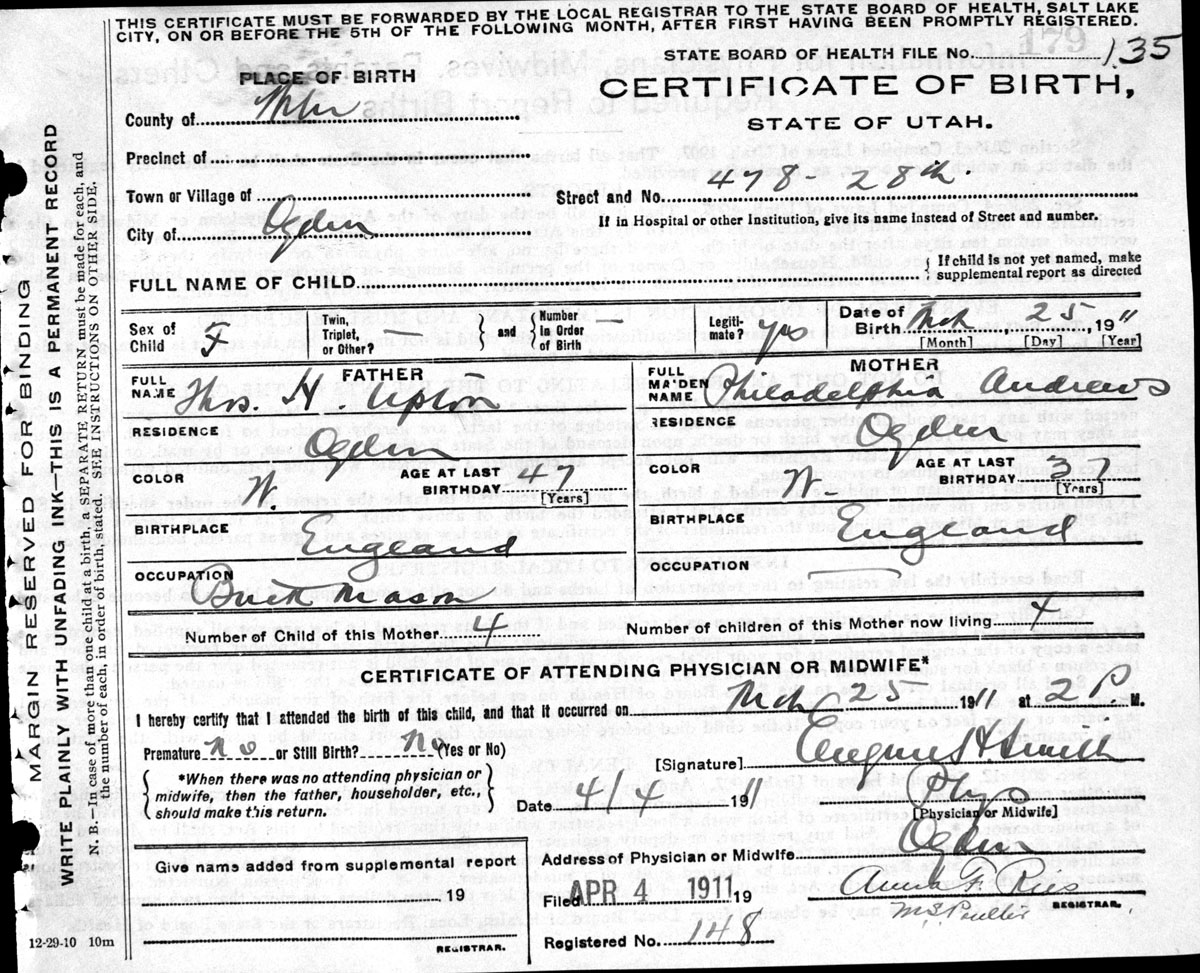 THIS CERTIFICATE MUST BE FORWARDED BY THE LOCAL REGISTRAR TO THE STATE BOARD OF HEALTH, SALT LAKE
CITY, ON OR BEFORE THE 5TH OF THE FOLLOWING MONTH, AFTER FIRST HAVING BEEN PROMPTLY REGISTERED.
STATE BOARD OF HEALTH FILE No. 135
PLACE OF BIRTH
CERTIFICATE OF BIRTH,
STATE OF UTAH.
County of
Precinct of
Town or Village of
Street and No. 478 - 28th
City of Ogden
If in Hospital or other Institution, give its name instead of Street and number.
FULL NAME OF CHILD
{ If child is not yet named, make
supplemental report as directed
Sex of Child F
Twin, Triplet, or Other? —
{ and }
Number in Order of Birth —
Legitimate? yes
Date of Birth Mch 25 1911
[Month] [Day] [Year]
FATHER
FULL NAME Thos. H. Upton
RESIDENCE Ogden
COLOR W.
AGE AT LAST BIRTHDAY 47
[Years]
BIRTHPLACE England
OCCUPATION Brick Mason
MOTHER
FULL MAIDEN NAME Philadelphia Andrews
RESIDENCE Ogden
COLOR W.
AGE AT LAST BIRTHDAY
[Years]
BIRTHPLACE England
OCCUPATION —
Number of Child of this Mother 4
Number of children of this Mother now living 4
CERTIFICATE OF ATTENDING PHYSICIAN OR MIDWIFE*
I hereby certify that I attended the birth of this child, and that it occurred on Mch 25 1911 at 2 P. M.
Premature No or Still Birth? No (Yes or No)
[Signature] Eugene H. Smith
{ *When there was no attending physician or
midwife, then the father, householder, etc.,
should make this return. }
Date 4/4 1911
Phys
[Physician or Midwife]
Give name added from supplemental report
19
REGISTRAR.
Address of Physician or Midwife Ogden
Filed APR 4 1911 19
Anna F. Ries
REGISTRAR.
Registered No. 148
MARGIN RESERVED FOR BINDING
WRITE PLAINLY WITH UNFADING INK—THIS IS A PERMANENT RECORD
N. B.—In case of more than one child at a birth, a SEPARATE RETURN must be made for each, and
the number of each, in order of birth, stated. SEE INSTRUCTIONS ON OTHER SIDE.
12-29-10 10m